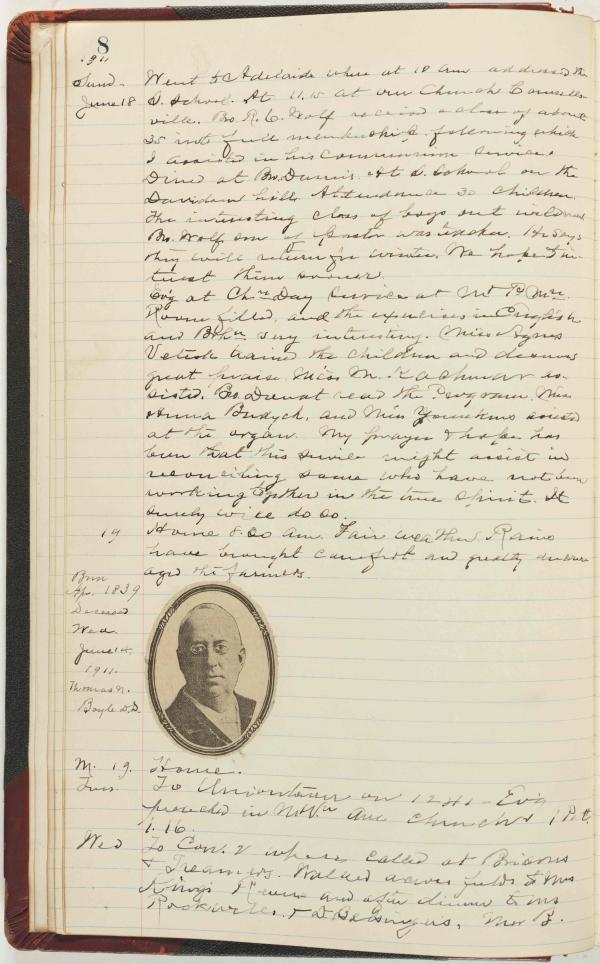 8
1911
Sund. Went to Adelaide where at 10 am addressed the
June 18 S. School. At 11.15 at our Church Connells-
ville. Bro R. C. Wolf received a class of about
35 into full membership following which
I assisted in his Communion service.
Dined at Bro. Dunn's. At S. School on the
Davidson hill. Attendance 30 children.
The interesting class of boys out
Bro. Wolf son of Pastor was teacher. He says
they will return for winter. We hope to in-
terest them sooner.
Ev'g at Chn Day service at Mt
Room filled, and the exercises in English
and Bohn very interesting. Miss Agnes
trained the children and deserves
great praise. Miss M. as-
sisted. Bro. read the Program. Miss
Anna and Miss Younkins assisted
at the organ. My prayer & hope has
been that this service might assist in
reconciling some who have not been
working together in the true spirit. It
surely will do so.
19 Home 8.30 am. Fair weather. Rains
have brought comfort and greatly encour-
aged the farmers.
Born
Apr. 1839
Deceased
Wed.
June 14.
1911.
Thomas N.
Boyle D.D.
M. 19. Home.
Tues. To Uniontown on 12 41 - Ev'g
preached in Ave church 1 Pet.
1. 16.
Wed To Con. 2 where called at
& Treamers. Walked across fields to Mrs
King's and after dinner to Mrs
& D. Basinger's. Mr B.